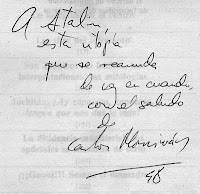 A Stalin
esta utopía
que se reanuda
de vez en cuando,
con el saludo
de
Carlos Monsiváis
98